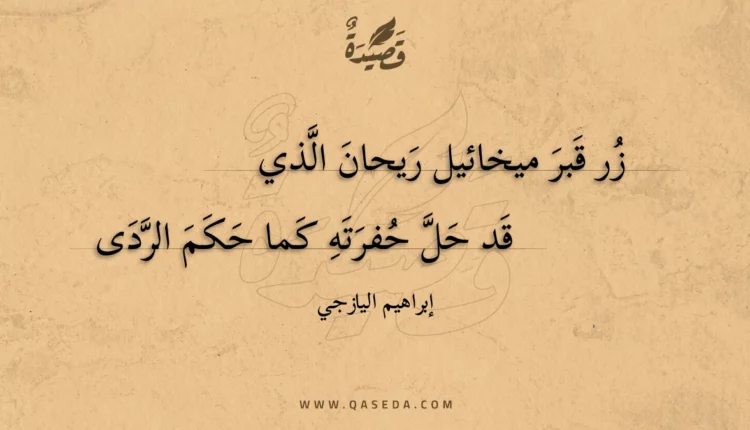 قَصِيْدَةٌ
زُر قَبرَ ميخائيل رَيحانَ الَّذي
قَد حَلَّ حُفرَتَهِ كَما حَكَمَ الرَّدَى
إبراهيم اليازجي
WWW.QASEDA.COM